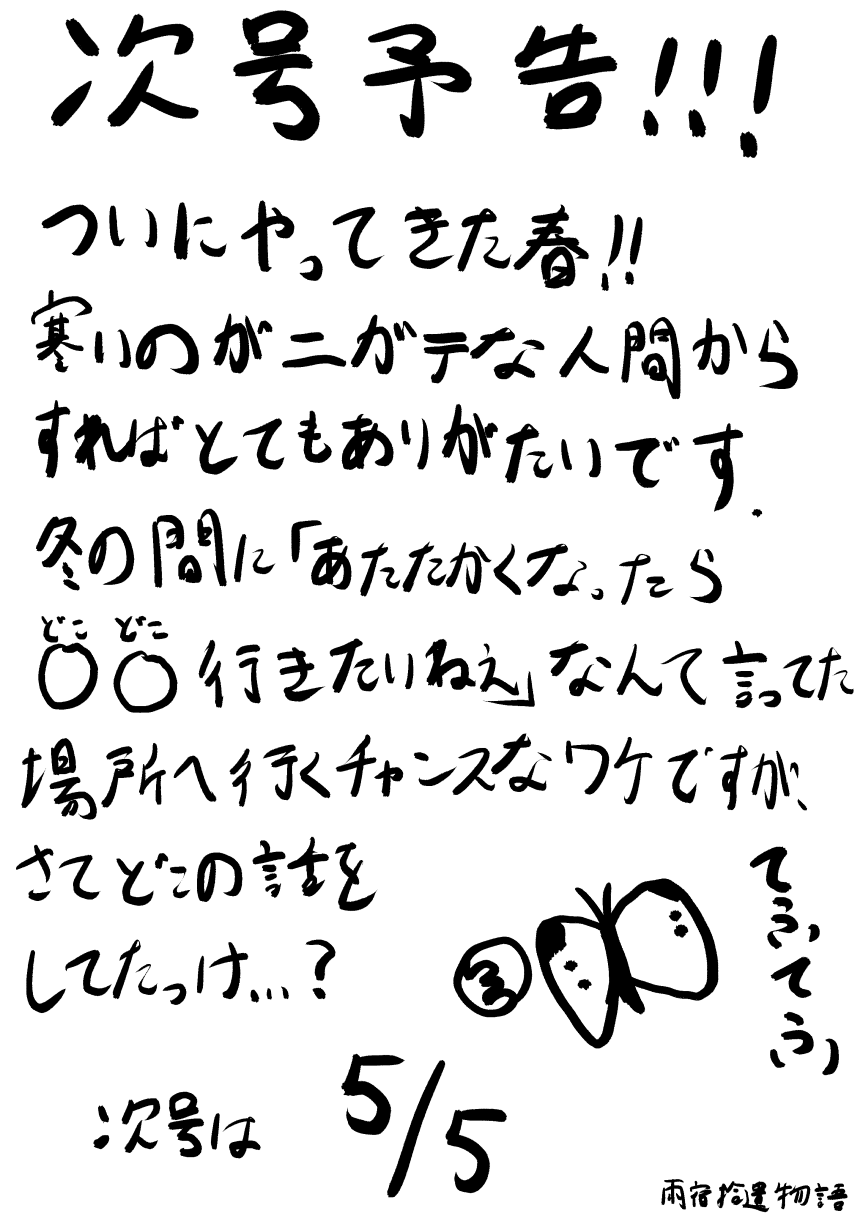 次号予告!!!
ついにやってきた春!!
寒いのがニガテな人間から
すればとてもありがたいです.
冬の間に「あたたかくなったら
どこ どこ
〇〇行きたいねぇ」なんて言ってた
場所へ行くチャンスなワケですが、
さてどこの話を
してたっけ...?
てふ
てふ
次号は 5/5
雨宿拾遺物語